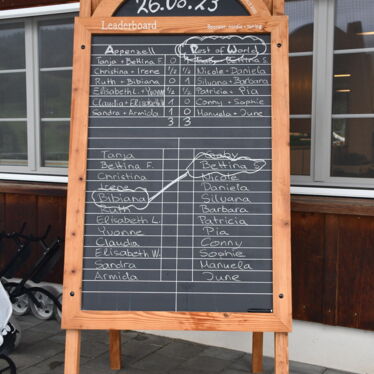 26.08.23
Leaderboard
Appenzell Rest of World
Tanja + Bettina F. 0 Bettina S.
Christina + Irene ½ ½ Nicole + Daniela
Ruth + Bibiana 0 1 Silvana + Barbara
Elisabeth L. + Yvonne ½ ½ Patricia + Pia
Claudia + Elisabeth W 1 0 Conny + Sophie
Sandra + Armida 1 0 Manuela + June
3 3
Tanja Gaby
Bettina F. Bettina S.
Christina Nicole
Irene Daniela
Bibiana Silvana
Ruth Barbara
Elisabeth L. Patricia
Yvonne Pia
Claudia Conny
Elisabeth W. Sophie
Sandra Manuela
Armida June